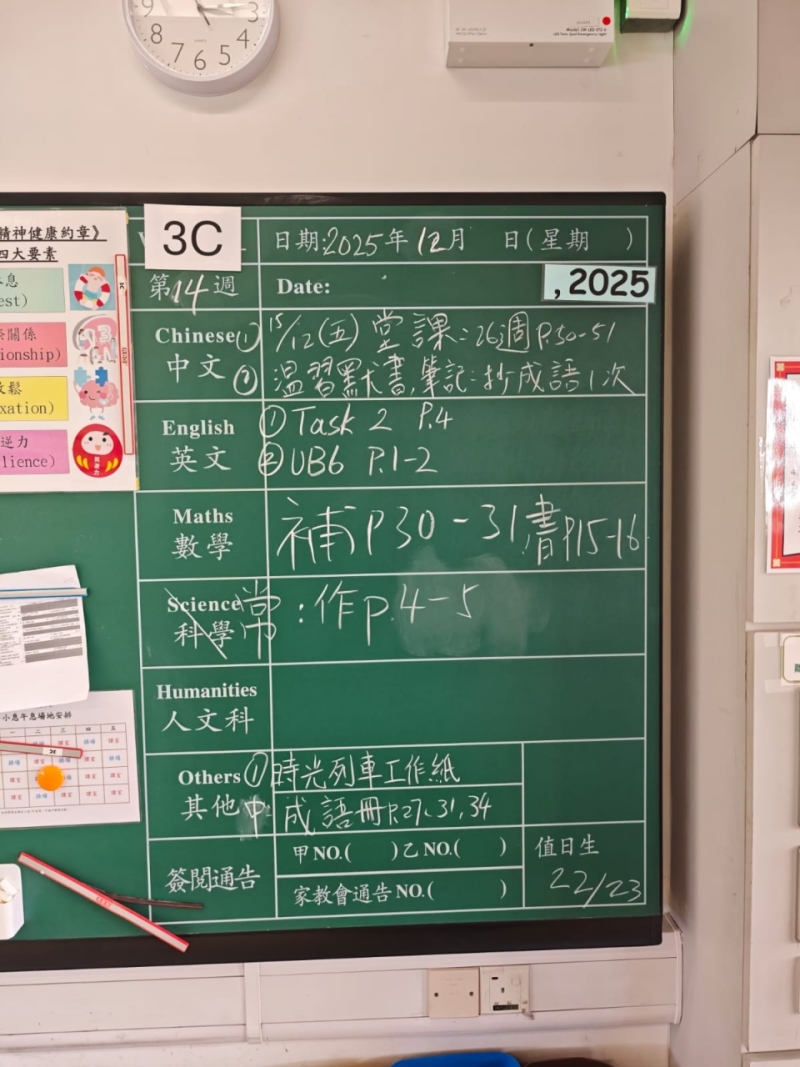 3
4
5
6
7
8
9
精神健康約章》
四大要素
息
est)
關係
ionship)
鬆
xation)
逆力
lience)
小息午息場地安排
一 二 三 四 五
3C
日期:2025年12月 日(星期 )
第14週
Date:
,2025
Chinese ① 15/12(五) 堂課:26週P.50-51
中文 ② 溫習默書,筆記:抄成語1次
English ① Task 2 P.4
英文 ② UB6 P.1-2
Maths
數學
補P30-31,書P15-16
Science
科學
常:作P.4-5
Humanities
人文科
Others ① 時光列車工作紙
其他 中 成語冊P.27、31,34
簽閱通告
甲NO.( )乙NO.( )
家教會通告NO.( )
值日生
22/23